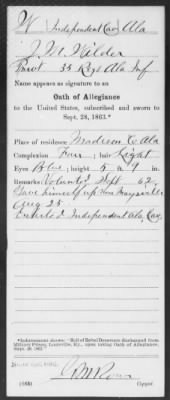 W | Independent Cav | Ala
J. M. Wilder
Privt 35 Regt Ala Inf
Name appears as signature to an
Oath of Allegiance
to the United States, subscribed and sworn to
Sept. 28, 1863.*
Place of residence Madison Co Ala
Complexion Fair; hair Light
Eyes Blue; height 5 ft. 9 in.
Remarks: Volunted Sept 62
Gave himself up Near Maysville
Aug 25
Enlisted Independent Ala, Cav,
*Indorsement shows: "Roll of Rebel Deserters discharged from
Military Prison, Louisville, Ky., upon taking Oath of Allegiance,
Sept. 28, 1863."
Copyist